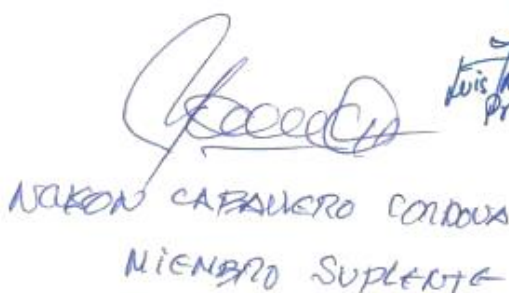 Luis
NELSON CABALLERO CORDOVA
MIEMBRO SUPLENTE